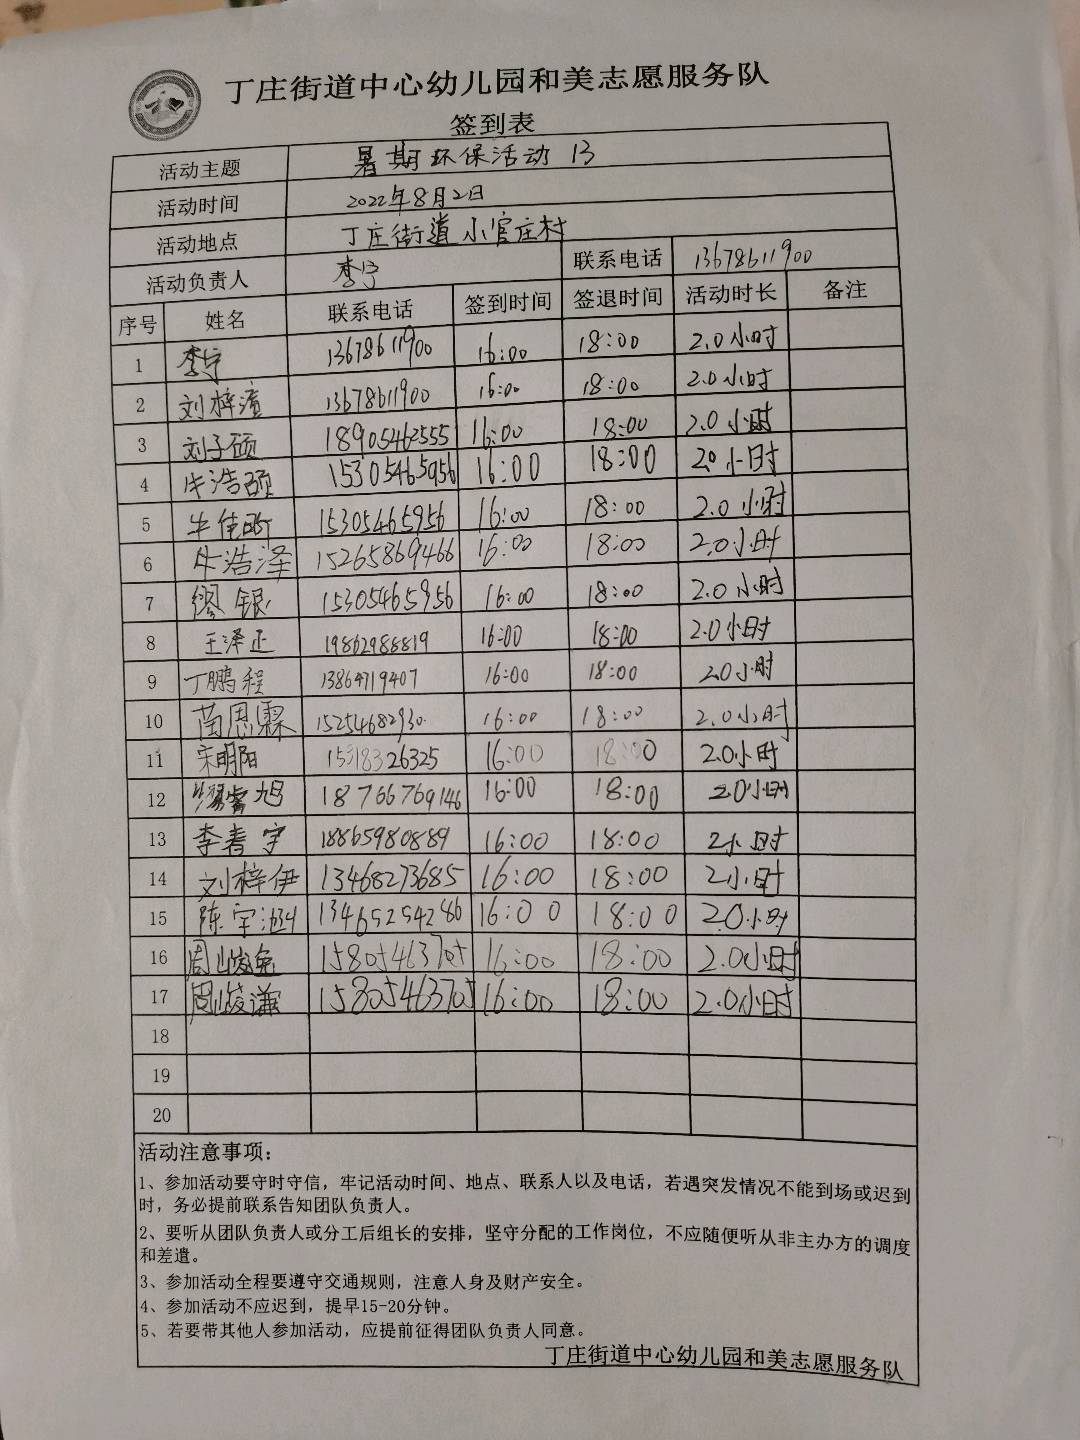 丁庄街道中心幼儿园和美志愿服务队
签到表
活动主题 暑期环保活动 13
活动时间 2022年8月2日
活动地点 丁庄街道小官庄村
活动负责人 李宁 联系电话 13678611900
序号 姓名 联系电话 签到时间 签退时间 活动时长 备注
1 李宁 13678611900 16:00 18:00 2.0小时
2 刘梓濆 13678611900 16:00 18:00 2.0小时
3 刘子硕 18905462555 16:00 18:00 2.0小时
4 牛浩硕 15305465956 16:00 18:00 2.0小时
5 牛佳昕 15305465956 16:00 18:00 2.0小时
6 牛浩泽 15265869466 16:00 18:00 2.0小时
7 缪银 15305465956 16:00 18:00 2.0小时
8 王泽正 19862988819 16:00 18:00 2.0小时
9 丁鹏程 13864719407 16:00 18:00 2.0小时
10 苗思霖 15254682930 16:00 18:00 2.0小时
11 宋明阳 16:00 18:00 2.0小时
12 18766769146 16:00 18:00 2.0小时
13 李春宇 18865980889 16:00 18:00 2小时
14 刘梓伊 13468273685 16:00 18:00 2小时
15 陈宇涵 13465254286 16:00 18:00 2.0小时
16 周峻逸 15805463705 16:00 18:00 2.0小时
17 周峻谦 15805463705 16:00 18:00 2.0小时
18
19
20
活动注意事项：
1、参加活动要守时守信，牢记活动时间、地点、联系人以及电话，若遇突发情况不能到场或迟到
时，务必提前联系告知团队负责人。
2、要听从团队负责人或分工后组长的安排，坚守分配的工作岗位，不应随便听从非主办方的调度
和差遣。
3、参加活动全程要遵守交通规则，注意人身及财产安全。
4、参加活动不应迟到，提早15-20分钟。
5、若要带其他人参加活动，应提前征得团队负责人同意。
丁庄街道中心幼儿园和美志愿服务队